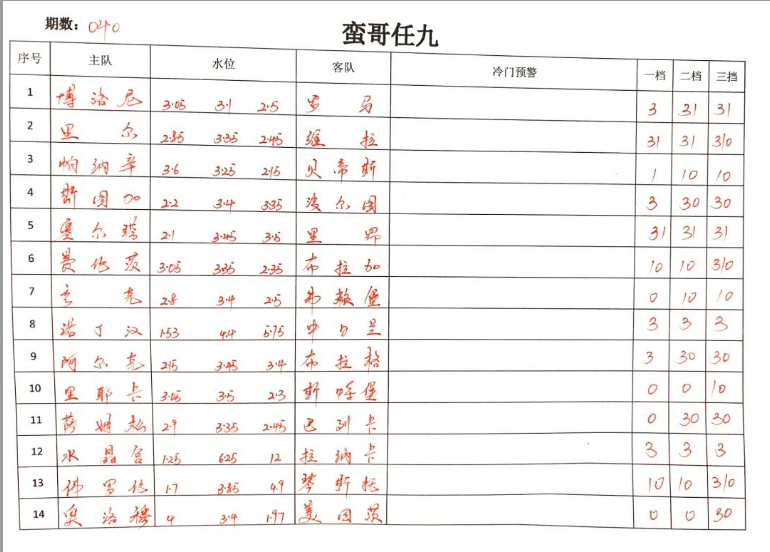 期数: 040
蛮哥任九
序号 主队 水位 客队 冷门预警 一档 二档 三挡
1 博洛尼 3.05 3.1 2.5 罗马 3 31 31
2 里尔 2.85 3.35 2.45 维拉 31 31 310
3 帕纳辛 3.6 3.25 2.15 贝帝斯 1 10 10
4 斯图加 2.2 3.4 3.35 波尔图 3 30 30
5 塞尔塔 2.1 3.45 3.5 里昂 31 31 31
6 费伦茨 3.05 3.35 2.35 布拉加 10 10 310
7 亨克 2.8 3.4 2.5 弗赖堡 0 10 10
8 诺丁汉 1.53 4.4 5.75 中日兰 3 3 3
9 阿尔克 2.15 3.45 3.4 布拉格 3 30 30
10 里耶卡 3.05 3.5 2.3 斯特堡 0 0 10
11 萨姆松 2.9 3.35 2.45 巴列卡 0 30 30
12 水晶宫 1.25 6.25 12 拉纳卡 3 3 3
13 佛罗伦 1.7 3.85 4.9 琴斯托 10 10 310
14 奥洛穆 4 3.4 1.97 美因茨 0 0 30